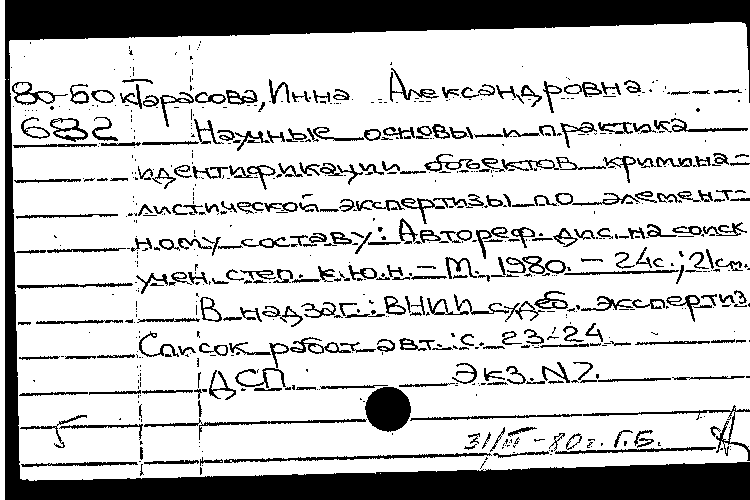 80-60к Тарасова, Инна Александровна.
682 Научные основы и практика
идентификации объектов кримина-
листической экспертизы по элемент-
ному составу: Автореф. дис. на соиск
учен. степ. к.ю.н. – М., 1980. – 24с.; 21см.
В надзаг.: ВНИИ судеб. экспертиз
Список работ авт.: с. 23-24
ДСП. Экз. N7.
31/III-80г. Г.Б.